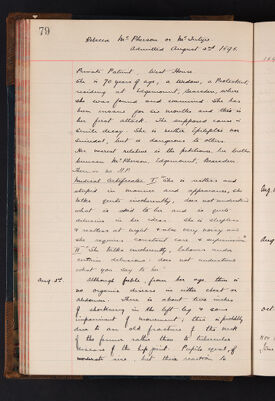 79
Rebecca McPherson or McIntyre
Admitted August 2nd 1898.
Private Patient. West House
She is 70 years of age, a Widow, a Protestant,
residing at Edgemount, Bearsden, where
she was found and examined. She has
been insane for six months and this is
her first attack. The supposed cause is
Senile decay. She is neither Epileptic nor
Suicidal, but is dangerous to others.
Her nearest relative is the petitioner, her brother
McPherson, Edgemount, Bearsden
There is no H.P.
Medical Certificates I "She is restless and
stupid in manner and appearance, she
talks quite incoherently, does not understand
what is said to her and is quite
delirious in her ideas. She is sleepless
& restless at night & also very noisy and
she requires constant care & supervision"
II "She talks incoherently, labours under
certain delusions does not understand
what you say to her"
Aug 3rd. Although feeble, from her age, there is
no organic disease in either chest or
abdomen. There is about two inches
of shortening in the left leg & some
impairment of movement, this is probably
due to an old fracture of the neck
of the femur rather than to tubercular
disease of the hip joint. Pupils equal, of
moderate size, but their reaction to
Aug
Oct